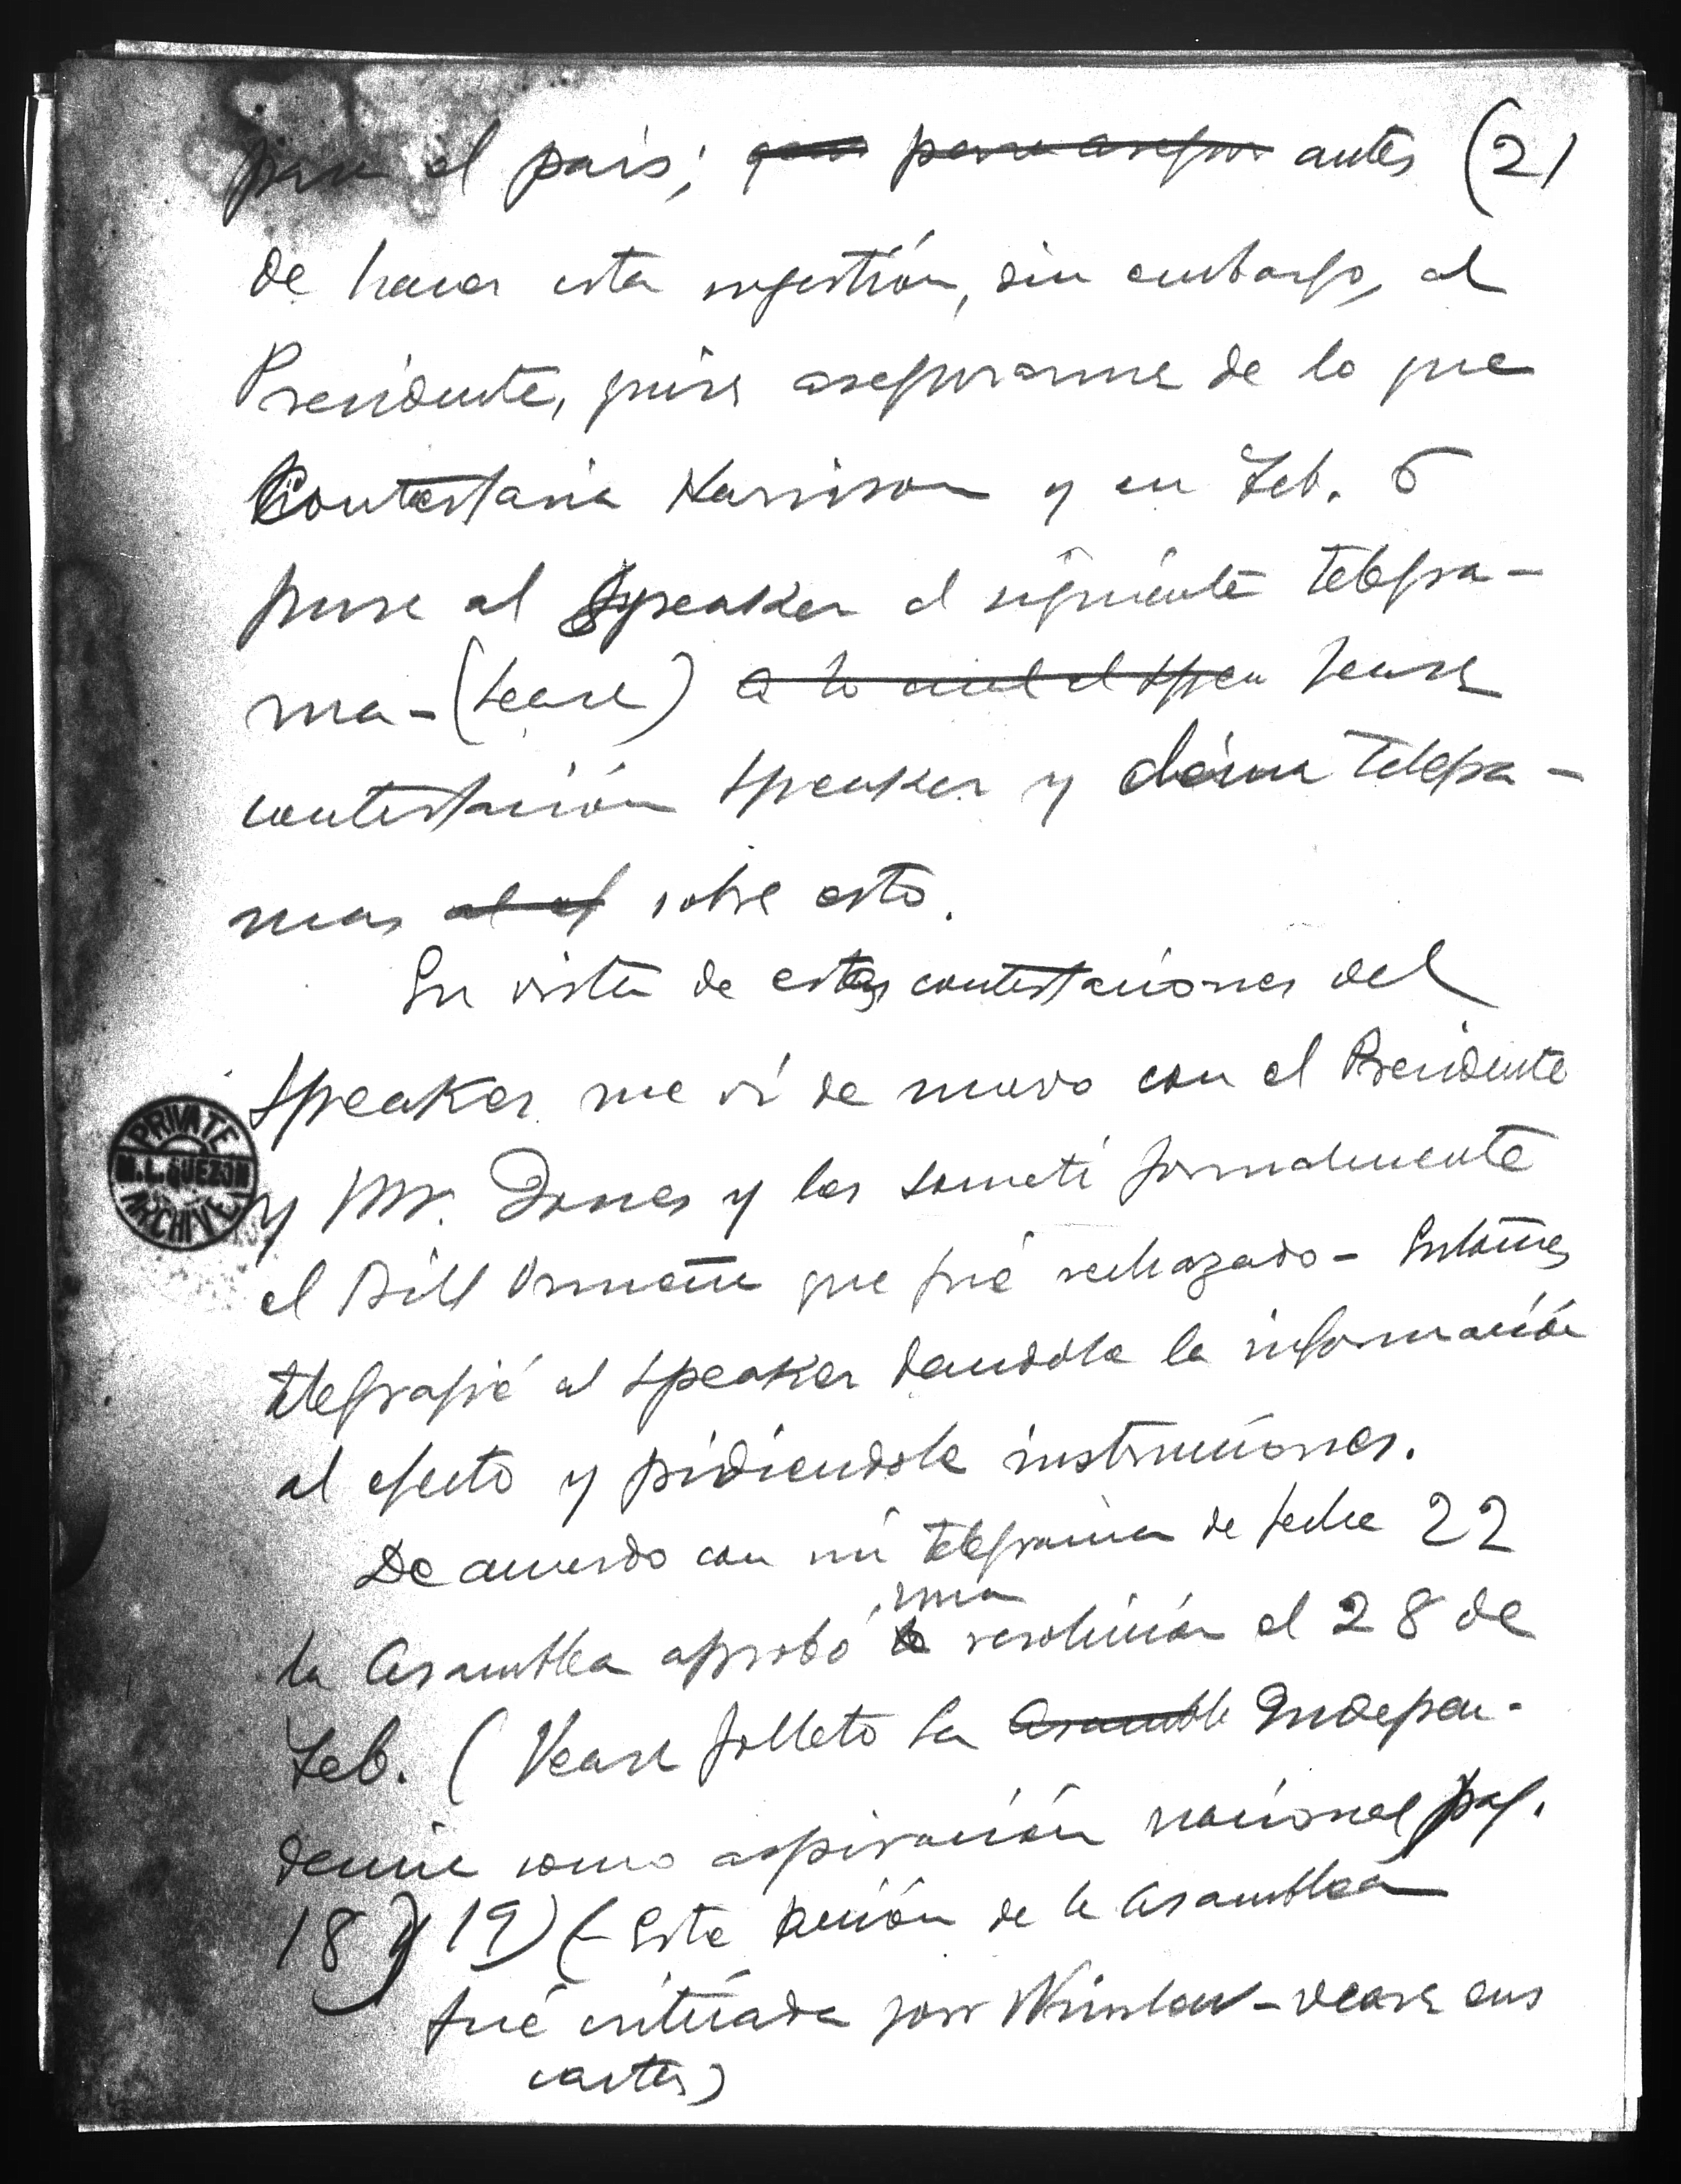 para el país; para asegur antes (2)
de hacer esta sugestión, sin embargo, al
Presidente, quise asegurarme de lo que
Contestaria Harrison y en Feb. 5
puse al Speaker el siguiente telegra-
ma-(Lease) a lo cual el Spea Lease
contestación Speaker y demas telegra-
mas sobre esto.
En vista de estas contestaciones del
Speaker me ví de nuevo con el Presidente
y Mr. Jones y les someti formalmente
el Bill que fué rechazado - Entonces
telegrafié al Speaker dandole la información
al efecto y pidiendole instrucciones.
De acuerdo con mi telegrama de fecha 22
una
la Asamblea aprobó la resolución el 28 de
Feb. (Vease folleto La Asamble Indepen-
dencia como aspiración nacional pag.
18 y 19) (- Esta acción de la Asamblea
fué criticada por Winslow - vease sus
cartas)
PRIVATE
M.L. QUEZON
ARCHIVE